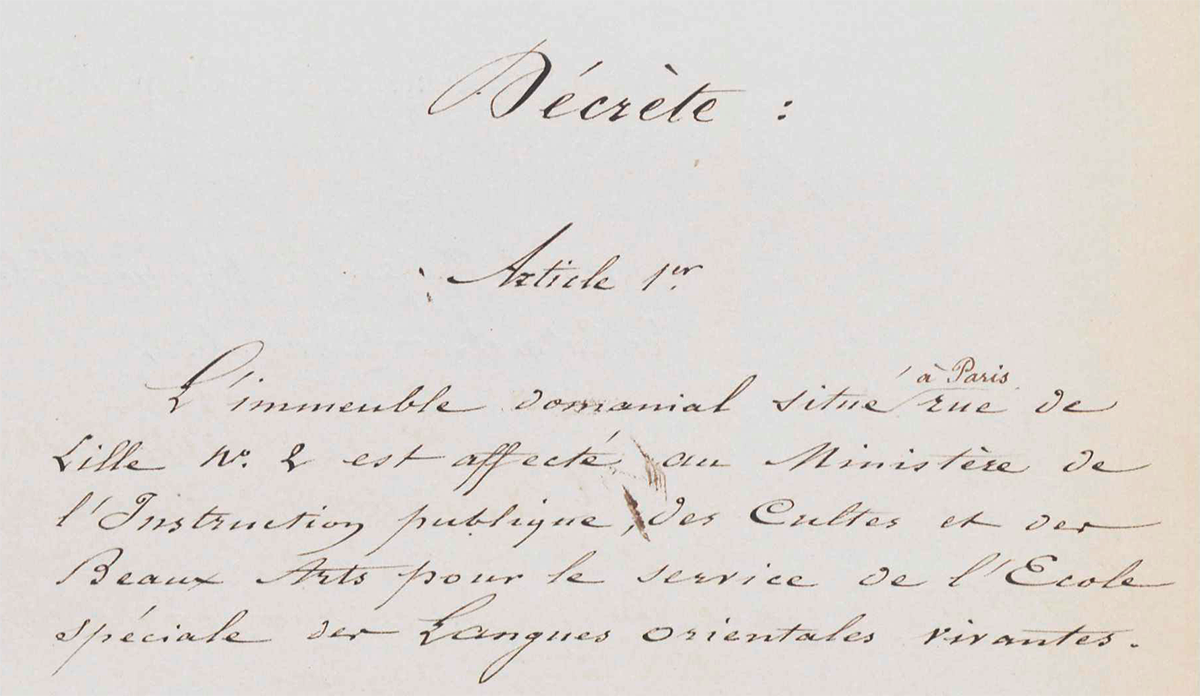 Décrète :
Article 1er.
L'immeuble domanial situé à Paris rue de
Lille No. 2 est affecté au Ministère de
l'Instruction publique, des Cultes et des
Beaux Arts pour le service de l'Ecole
spéciale des Langues orientales vivantes.